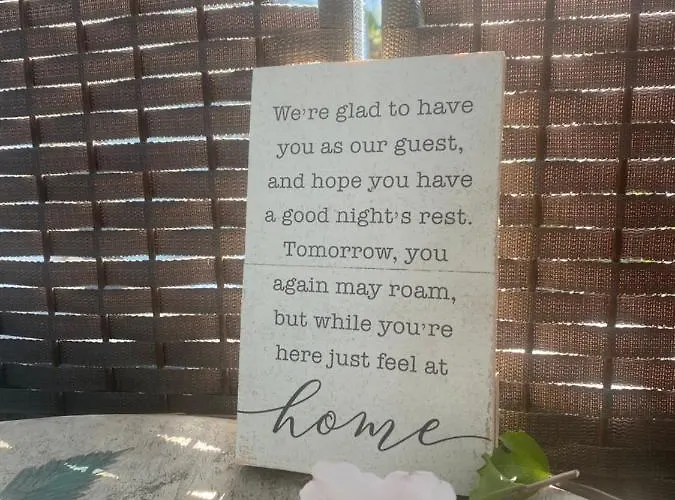 We're glad to have
you as our guest,
and hope you have
a good night's rest.
Tomorrow, you
again may roam,
but while you're
here just feel at
home